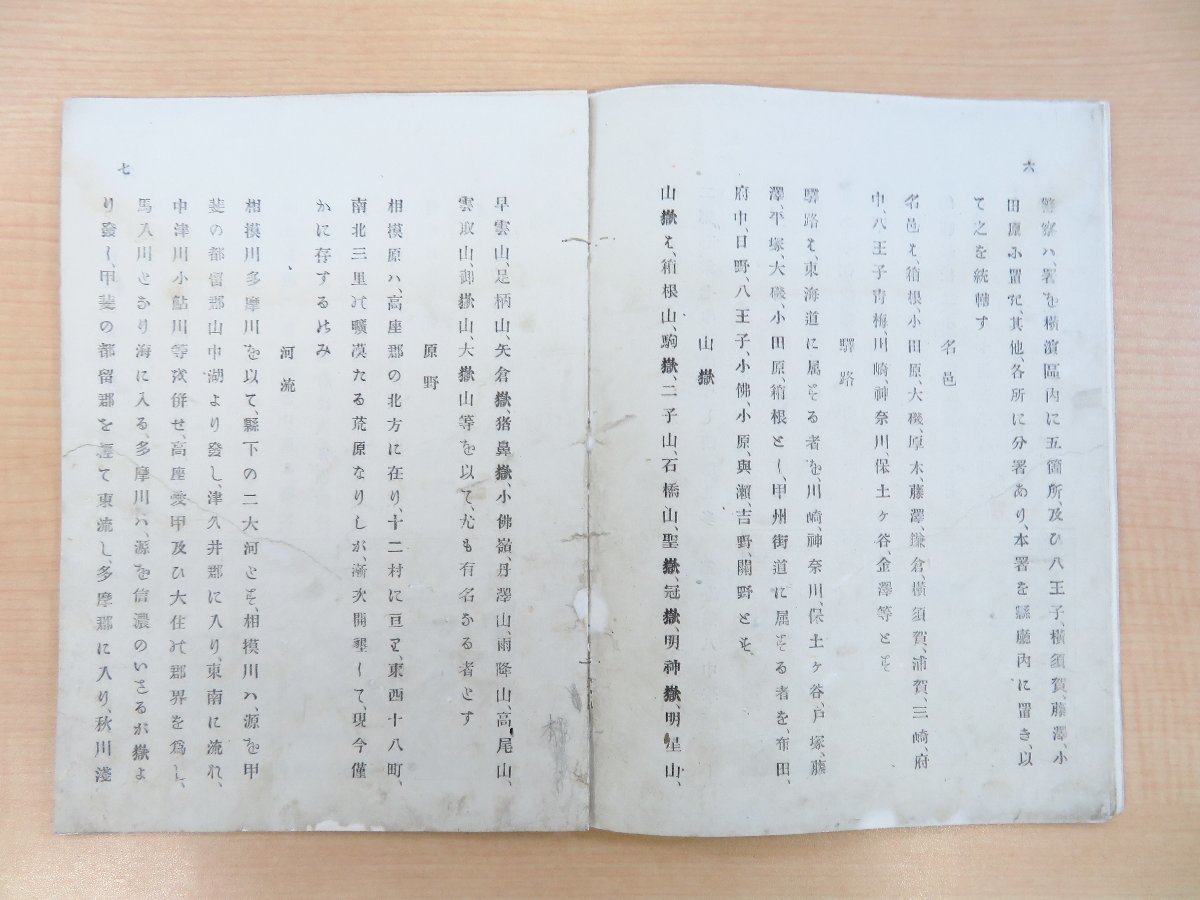 六
警察ハ、署を橫濱區内に五箇所、及ひ八王子、橫須賀、藤澤、小
田原に置た、其他、各所に分署あり、本署を縣廳内に置き、以
て之を統轄す
名邑
名邑は、箱根、小田原、大磯、厚木、藤澤、鎌倉、橫須賀、浦賀、三崎、府
中、八王子、青梅、川崎、神奈川、保土ヶ谷、金澤等とす
驛路
驛路は、東海道に属する者を、川崎、神奈川、保土ヶ谷、戸塚、藤
澤、平塚、大磯、小田原、箱根とし、甲州街道に属する者を、布田、
府中、日野、八王子、小佛、小原、與瀬、吉野、關野とす、
山嶽
山嶽は、箱根山、駒嶽、二子山、石橋山、聖嶽、冠嶽、明神嶽、明星山、
七
早雲山、足柄山、矢倉嶽、猪鼻嶽、小佛嶺、丹澤山、雨降山、高尾山、
雲取山、御嶽山、大嶽山等を以て、尤も有名なる者とす
原野
相摸原ハ、高座郡の北方に在り、十二村に亘り、東西十八町、
南北三里の曠漠たる荒原なりしが、漸次開墾して、現今僅
かに存するのみ
河流
相摸川多摩川を以て、縣下の二大河とす、相摸川ハ、源を甲
斐の都留郡山中湖より發し、津久井郡に入り、東南に流れ、
中津川小鮎川等を併せ、高座愛甲及ひ大住の郡界を爲し、
馬入川となり海に入る、多摩川ハ、源を信濃のいさるが嶽よ
り發し、甲斐の都留郡を歴て東流し、多摩郡に入り、秋川淺